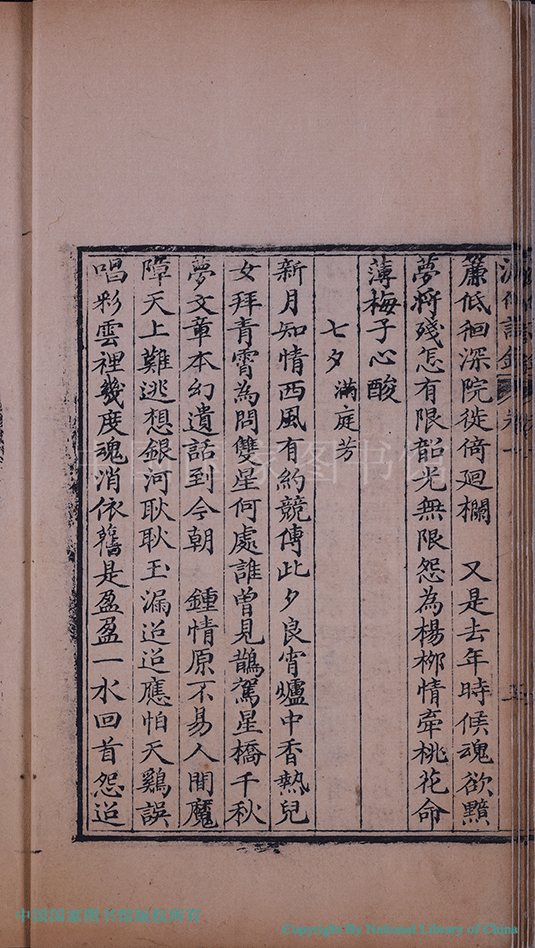 簾低徊深院徙倚迴欄　又是去年時候魂欲黯
夢將殘怎有限韶光無限怨為楊柳情牽桃花命
薄梅子心酸
七夕　滿庭芳
新月知情西風有約競傳此夕良宵爐中香熱兒
女拜青霄為問雙星何處誰曾見鵲駕星橋千秋
夢文章本幻遺話到今朝　鍾情原不易人間魔
障天上難逃想銀河耿耿玉漏迢迢應怕天鷄誤
唱彩雲裡幾度魂消依舊是盈盈一水回首怨迢
中国国家图书馆版权所有
Copyright By National Library of China